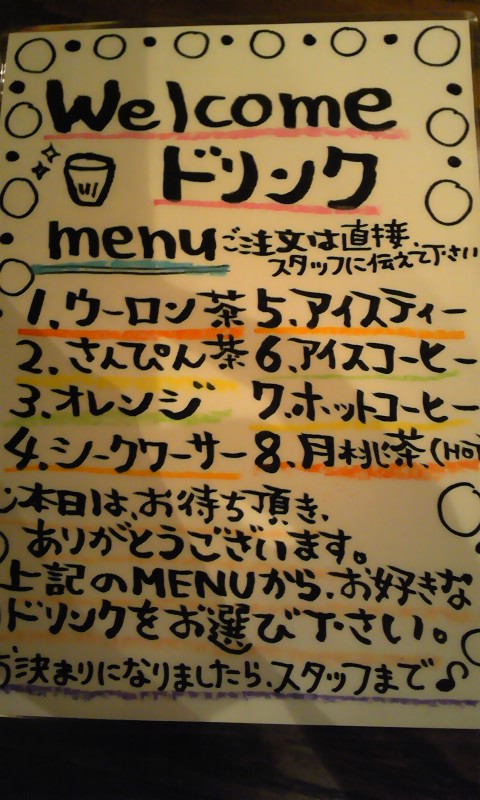 Welcome
ドリンク
menu ご注文は直接、
スタッフに伝えて下さい
1.ウーロン茶 5.アイスティー
2.さんぴん茶 6.アイスコーヒー
3.オレンジ 7.ホットコーヒー
4.シークワーサー 8.月桃茶(HOT
本日は、お待ち頂き、
ありがとうございます。
上記のMENUから、お好きな
ドリンクをお選び下さい。
お決まりになりましたら、スタッフまで♪